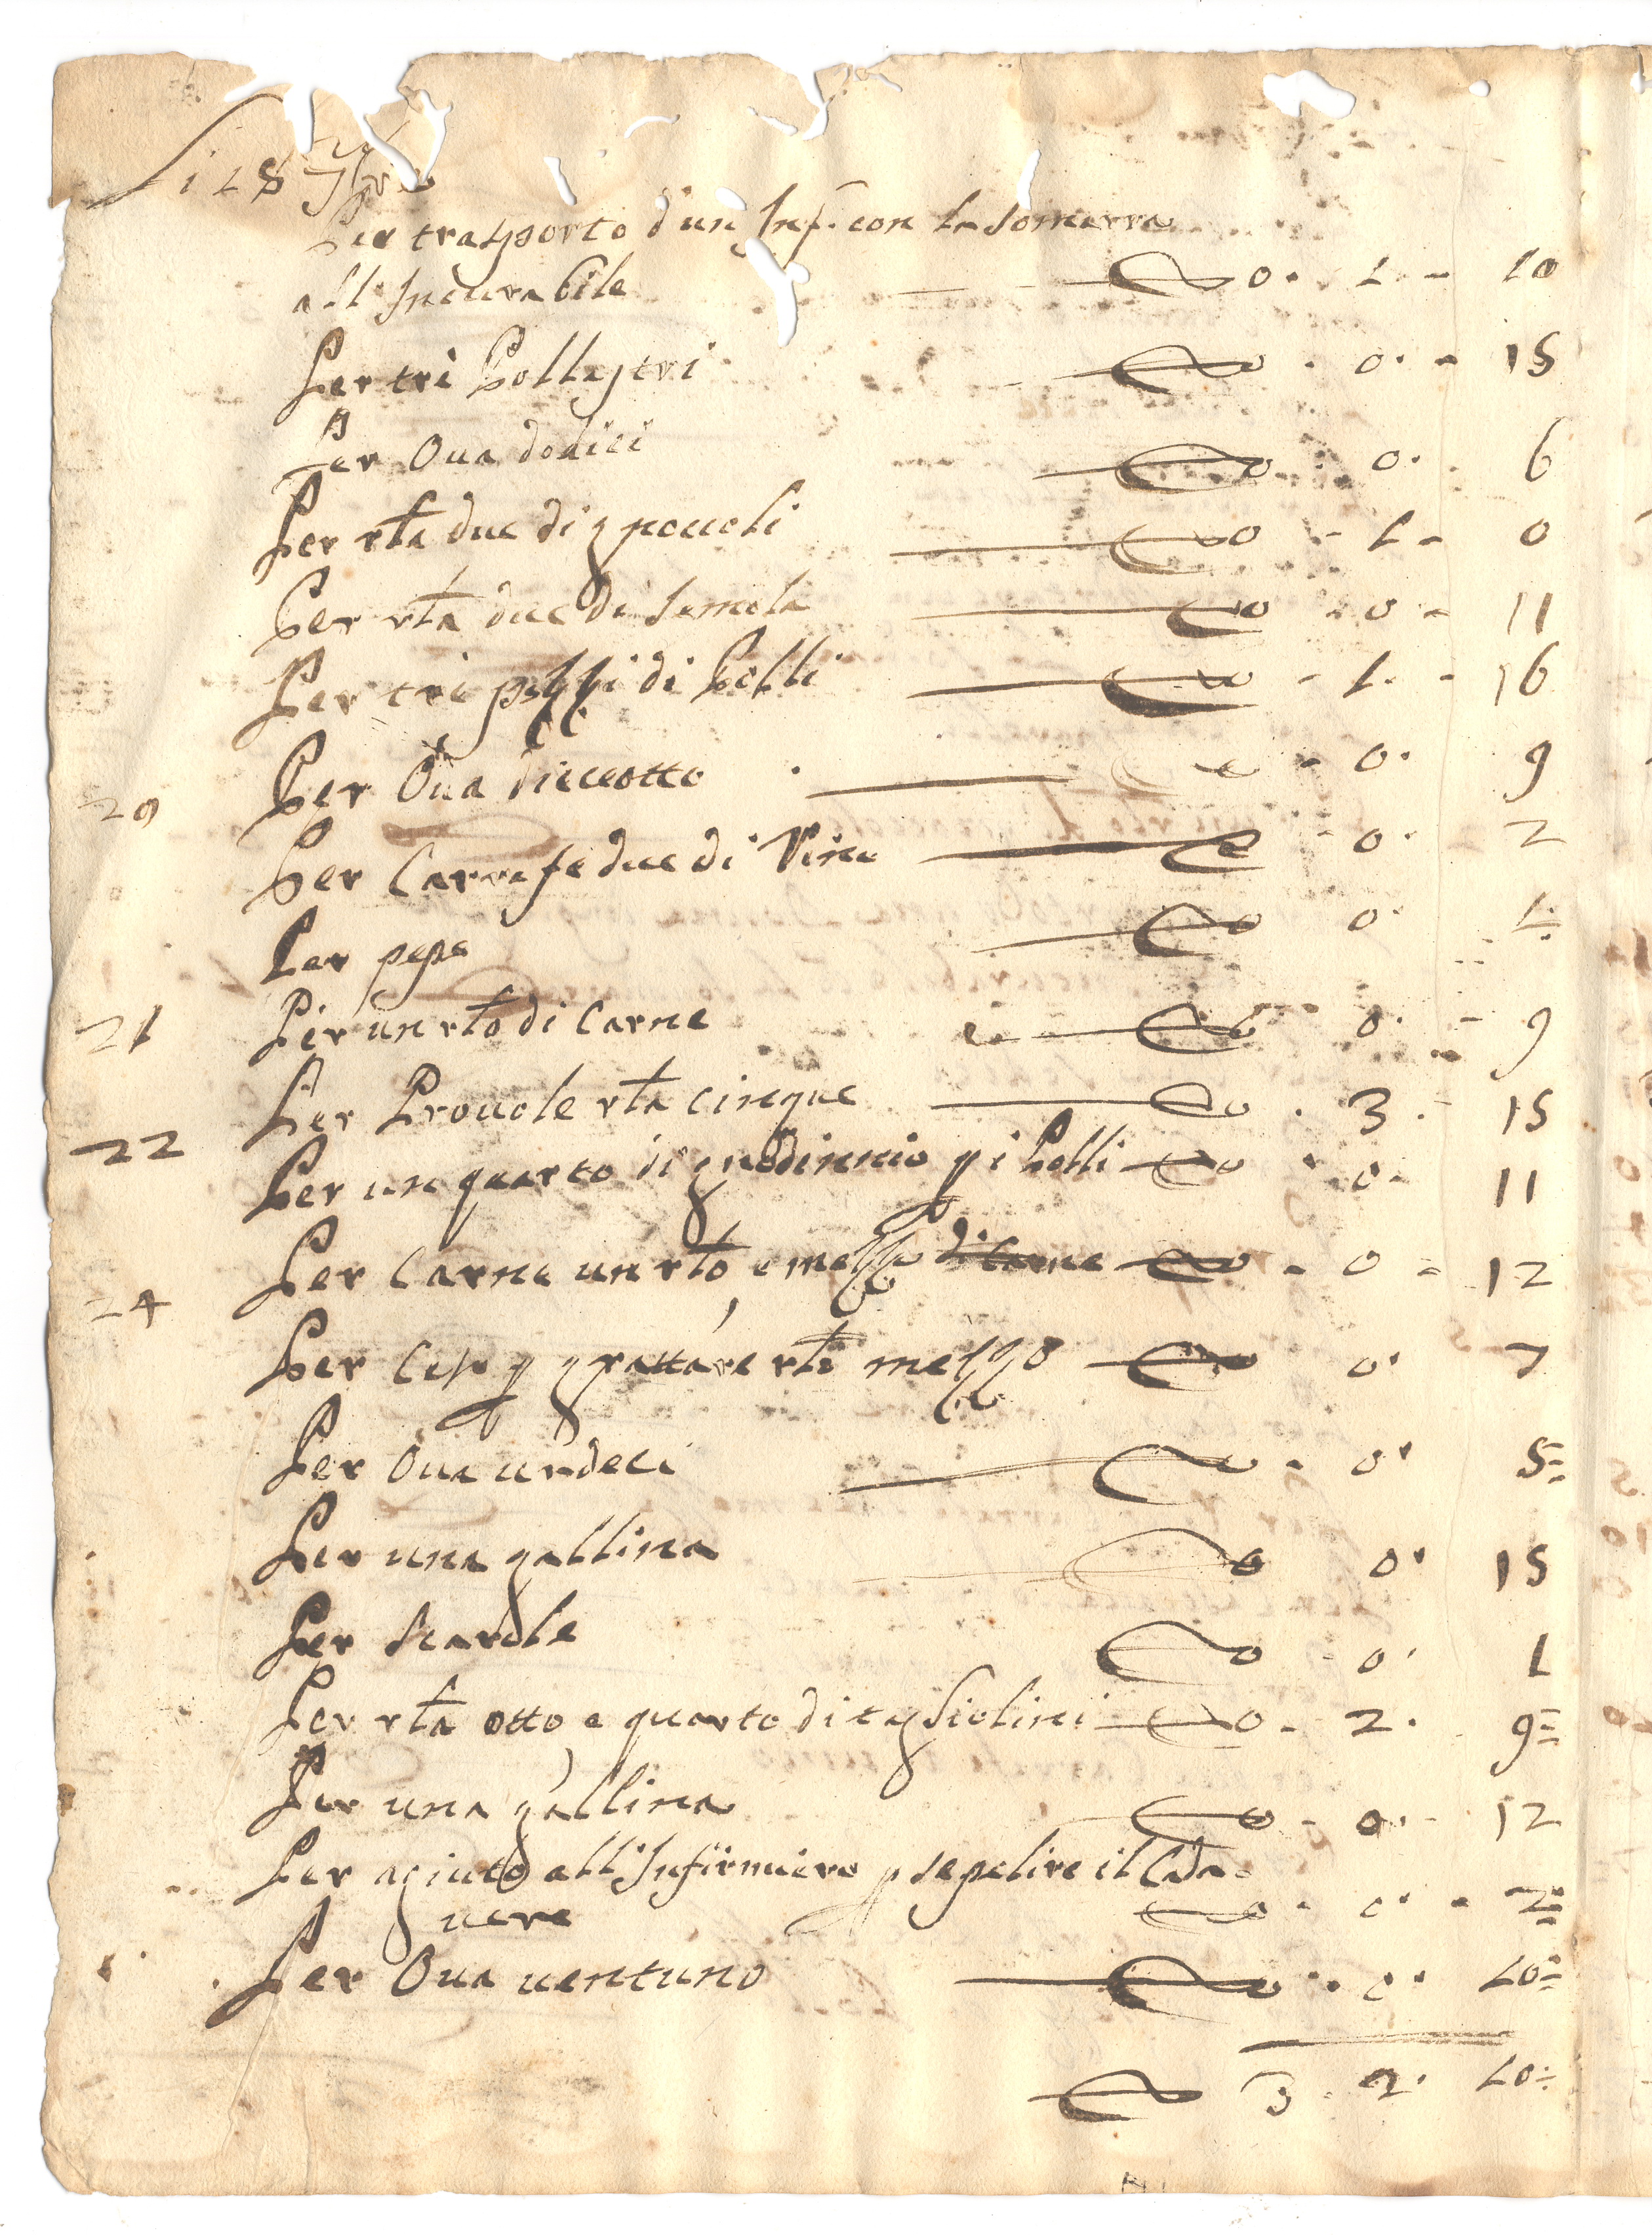 Per trasporto d'un Inf. con la somarra
all'Incurabile 0. 1. - 10
Per trè Pollastri 0. 0. - 15
Per Oua dodici 0. 0. 6
Per rta due di gnoccoli 0 - 1 - 0
Per rta due di semola 0 - 0 - 11
Per trè pezzi di Polli 0 - 1. - 16
20 Per Oua dieceotto 0 - 0. 9
Per Carrafe due di Vino 0 - 0. 2
Per pepe 0 0. 1
21 Per un rto di Carne 0 0. - 9
22 Per Prouole rta cinque 0. 3. - 15
Per un quarto di p i Polli 0 . 0. 11
24 Per Carne un rto, e mezzo di Carne 0 - 0 - 12
Per Caso p grattare rto mezzo 0 0. 7
Per Oua undeci 0 - 0. 5=
Per una gallina 0 0. 15
Per scarole 0 - 0. 1
Per rta otto, e quarto di tagliolini 0 - 2. 9=
Per una gallina 0 - 0. - 12
Per agiuto all'Infirmiero p sepelire il Cada=
uere 0 - 0. - 2=
Per Oua uentuno 0 . 0. 10=
3 . 2. 10=